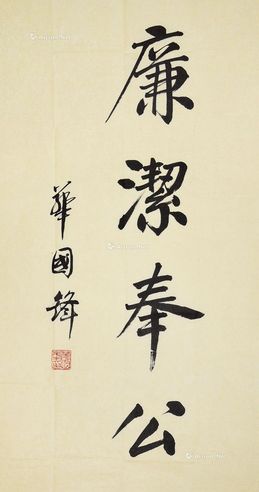 廉潔奉公
華國鋒